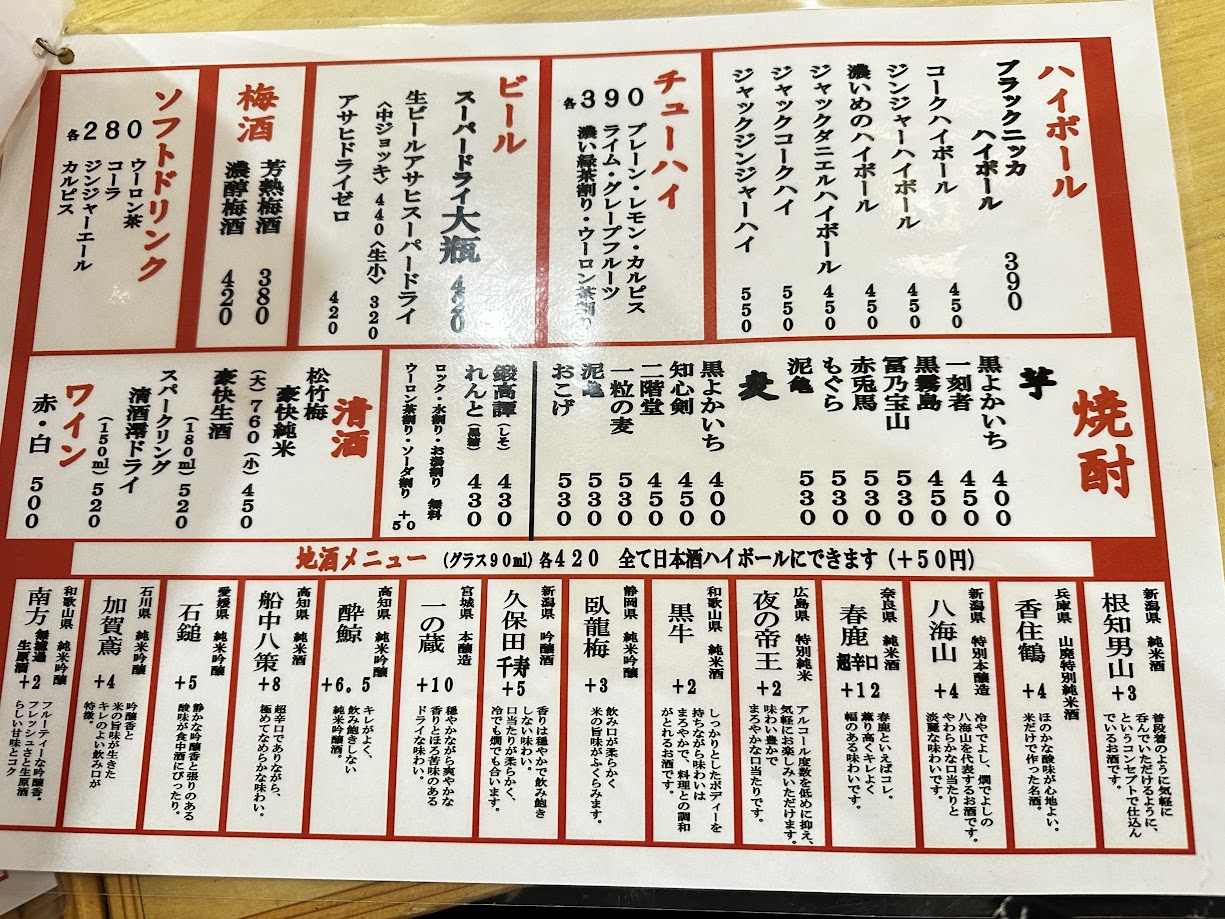 ハイボール
ブラックニッカ
ハイボール 390
コークハイボール 450
ジンジャーハイボール 450
濃いめのハイボール 450
ジャックダニエルハイボール 450
ジャックコークハイ 550
ジャックジンジャーハイ 550
チューハイ
各390
プレーン・レモン・カルピス
ライム・グレープフルーツ
濃い緑茶割り・ウーロン茶割り
ビール
スーパードライ大瓶 420
生ビールアサヒスーパードライ
〈中ジョッキ〉440〈生小〉320
アサヒドライゼロ 420
梅酒
芳熟梅酒 380
濃醇梅酒 420
ソフトドリンク
各280
ウーロン茶
コーラ
ジンジャーエール
カルピス
焼酎
芋
黒よかいち 400
一刻者 450
黒霧島 450
冨乃宝山 530
赤兎馬 530
もぐら 530
泥亀 530
麦
黒よかいち 400
知心剣 450
二階堂 450
一粒の麦 530
泥亀 530
おこげ 530
鍛高譚(しそ) 430
れんと(黒糖) 430
ロック・水割り・お湯割り 無料
ウーロン茶割り・ソーダ割り +50
清酒
松竹梅
豪快純米
(大)760(小)450
豪快生酒
(180ml)520
スパークリング
清酒澪ドライ
(150ml)520
ワイン
赤・白 500
地酒メニュー (グラス90ml)各420 全て日本酒ハイボールにできます(+50円)
新潟県 純米酒
根知男山 +3
普段着のように気軽に
呑んでいただけるように、
というコンセプトで仕込ん
でいるお酒です。
兵庫県 山廃特別純米酒
香住鶴 +4
ほのかな酸味が心地よい。
米だけで作った名酒。
新潟県 特別本醸造
八海山 +4
冷やでよし、燗でよしの
八海山を代表するお酒です。
やわらかな口当たりと
淡麗な味わいです。
奈良県 純米酒
春鹿 超辛口 +12
春鹿といえばコレ。
薫り高くキレよく
幅のある味わいです。
広島県 特別純米
夜の帝王 +2
アルコール度数を低めに抑え、
気軽にお楽しみいただけます。
味わい豊かで
まろやかな口当たりです。
和歌山県 純米酒
黒牛 +2
しっかりとしたボディーを
持ちながら味わいは
まろやかで、料理との調和
がとれるお酒です。
静岡県 純米吟醸
臥龍梅 +3
飲み口が柔らかく
米の旨味がふくらみます。
新潟県 吟醸酒
久保田 千寿 +5
香りは穏やかで飲み飽き
しない味わい。
口当たりが柔らかく、
冷でも燗でも合います。
宮城県 本醸造
一の蔵 +10
穏やかながら爽やかな
香りとほろ苦味のある
ドライな味わい。
高知県 純米吟醸
酔鯨 +6.5
キレがよく、
飲み飽きしない
純米吟醸酒。
高知県 純米酒
船中八策 +8
超辛口でありながら、
極めてなめらかな味わい。
愛媛県 純米吟醸
石鎚 +5
静かな吟醸香と張りのある
酸味が食中酒にぴったり。
石川県 純米吟醸
加賀鳶 +4
吟醸香と
米の旨味が生きた
キレのよい飲み口が
特徴。
和歌山県 純米吟醸
南方 無濾過 生原酒 +2
フルーティーな吟醸香。
フレッシュさと生原酒
らしい甘味とコク